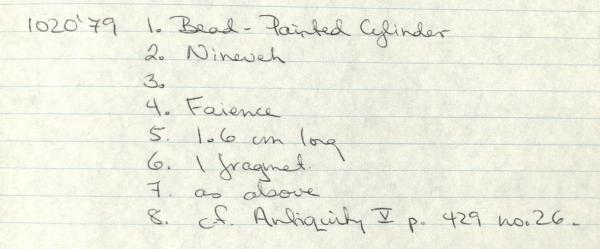 1020'79 1. Bead - Painted Cylinder
2. Nineveh
3.
4. Faience
5. 1.6 cm long
6. 1 fragmet.
7. as above
8. cf. Antiquity V p. 429 no. 26.